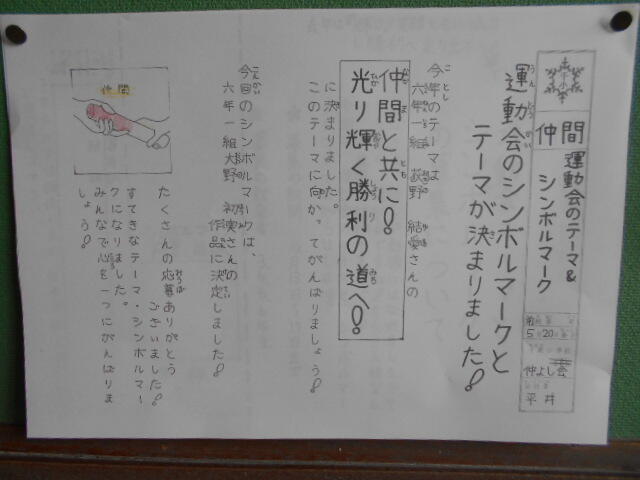 仲間
運動会のテーマ&
シンボルマーク
5月20日
仲よし会
平井
運動会のシンボルマークと
テーマが決まりました!
今年のテーマは
六年一組 荻野 結愛さんの
仲間と共に!
光り輝く勝利の道へ!
に決まりました。
このテーマに向かってがんばりましょう!
今回のシンボルマークは、
六年一組大野 初実さんの
作品に決定しました!
仲間
たくさんの応募ありがとう
ございました!
すてきなテーマ・シンボルマー
クになりました。
みんなで心を一つにがんばりま
しょう!